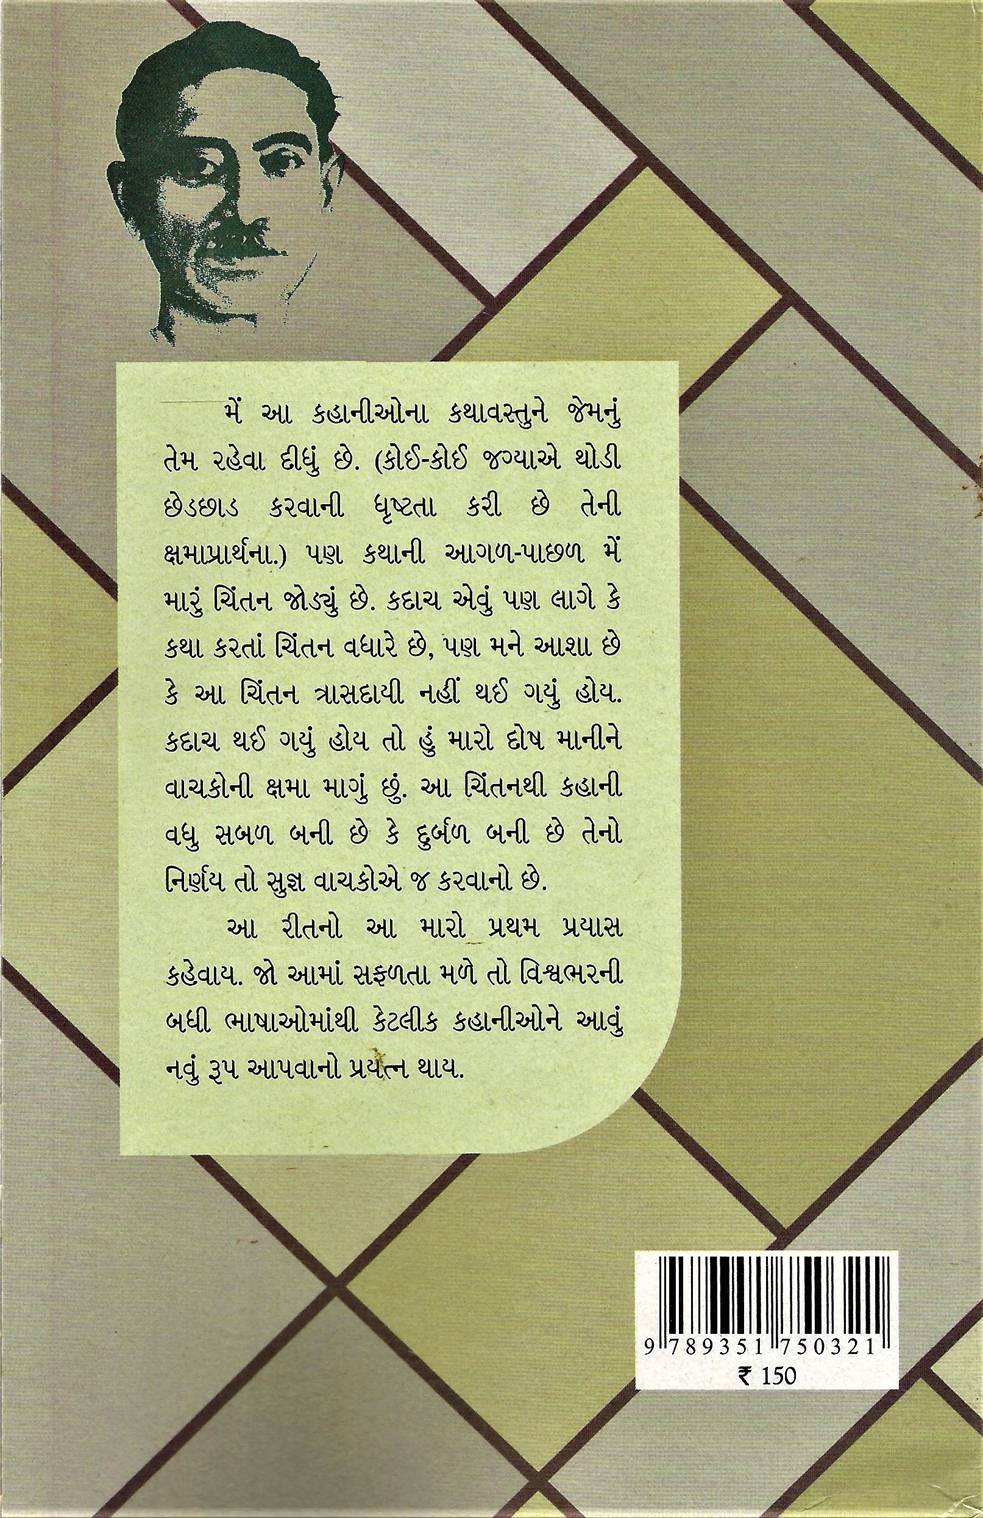 મેં આ કહાનીઓના કથાવસ્તુને જેમનું
તેમ રહેવા દીધું છે. (કોઈ-કોઈ જગ્યાએ થોડી
છેડછાડ કરવાની ધૃષ્ટતા કરી છે તેની
ક્ષમાપ્રાર્થના.) પણ કથાની આગળ-પાછળ મેં
મારું ચિંતન જોડ્યું છે. કદાચ એવું પણ લાગે કે
કથા કરતાં ચિંતન વધારે છે, પણ મને આશા છે
કે આ ચિંતન ત્રાસદાયી નહીં થઈ ગયું હોય.
કદાચ થઈ ગયું હોય તો હું મારો દોષ માનીને
વાચકોની ક્ષમા માગું છું. આ ચિંતનથી કહાની
વધુ સબળ બની છે કે દુર્બળ બની છે તેનો
નિર્ણય તો સુજ્ઞ વાચકોએ જ કરવાનો છે.
આ રીતનો આ મારો પ્રથમ પ્રયાસ
કહેવાય. જો આમાં સફળતા મળે તો વિશ્વભરની
બધી ભાષાઓમાંથી કેટલીક કહાનીઓને આવું
નવું રૂપ આપવાનો પ્રયત્ન થાય.
9 789351 750321
₹ 150